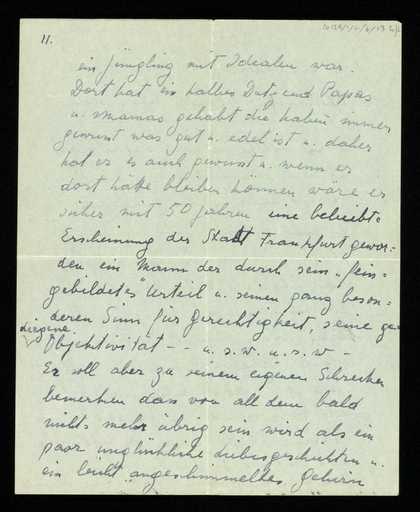 11.
ein Jüngling mit Idealen war.
Dort hat er ein halbes Dutzend Papas
u. Mamas gehabt die haben immer
gewusst was gut u. edel ist u. daher
hat er es auch gewusst u. wenn er
dort hätte bleiben können wäre er
sicher mit 50 Jahren eine beliebte
Erscheinung der Stadt Frankfurt gewor-
den ein Mann der durch sein "fein-
gebildetes" Urteil u. seinen ganz beson-
deren Sinn für Gerechtigkeit, seine ge-
diegene
Objektivität - - u.s.w. u.s.w -
Er soll aber zu seinem eigenen Schrecken
bemerken dass von all dem bald
nichts mehr übrig sein wird als ein
paar unglückliche Liebesgeschichten u.
ein leicht angeschimmeltes Gehirn